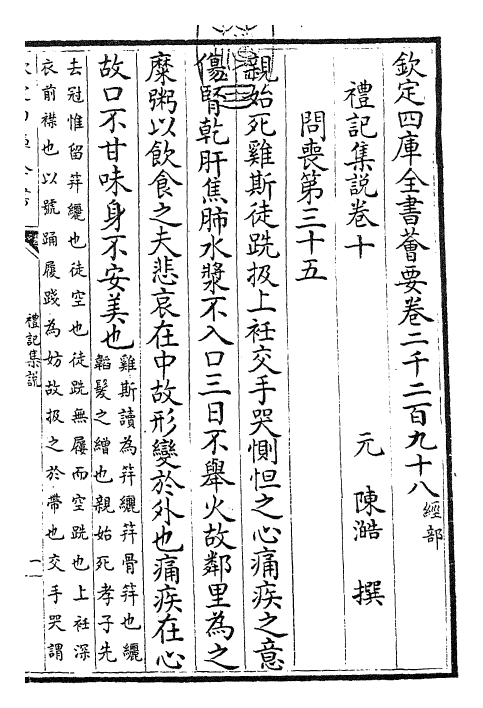 欽定四庫全書薈要卷二千二百九十八 經部
禮記集說卷十
元 陳澔 撰
問喪第三十五
親始死雞斯徒跣扱上衽交手哭惻怛之心痛疾之意
傷腎乾肝焦肺水漿不入口三日不舉火故鄰里為之
糜粥以飲食之夫悲哀在中故形變於外也痛疾在心
故口不甘味身不安美也
雞斯讀為笄纚笄骨笄也纚
韜髮之繒也親始死孝子先
去冠惟留笄纚也徒空也徒跣無屨而空跣也上衽深
衣前襟也以號踊履踐為妨故扱之於帶也交手哭謂
禮記集說
一